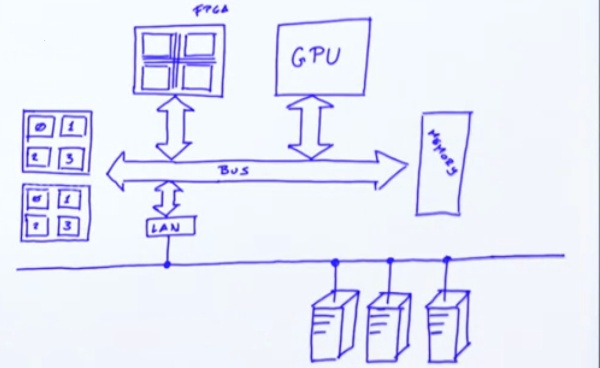 FPGA
GPU
0 1
2 3
0 1
2 3
BUS
MEMORY
LAN